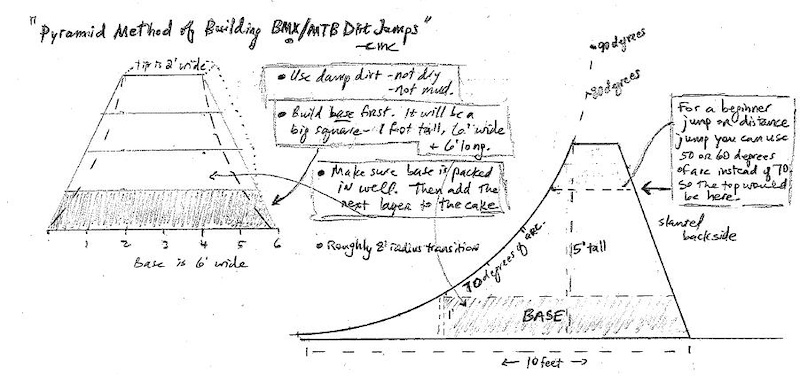 "Pyramid Method of Building BMX/MTB Dirt Jumps"
-CMC
tip is 2' wide
• Use damp dirt - not dry
- not mud.
• Build base first. It will be a
big square - 1 foot tall, 6' wide
+ 6' long.
• Make sure base is packed
in well. Then add the
next layer to the cake
• Roughly 8' radius transition
1 2 3 4 5 6
Base is 6' wide
90 degrees
80 degrees
For a beginner
jump or distance
jump you can use
50 or 60 degrees
of arc instead of 70
So the top would
be here.
slanted
backside
70 degrees of arc.
5' tall
BASE
10 feet